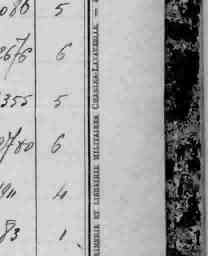 086 5
2676 6
1355 5
2780 6
4
83 1
RIMERIE ET LIBRAIRIE MILITAIRES CHARLES-LAVAUZELLE. —